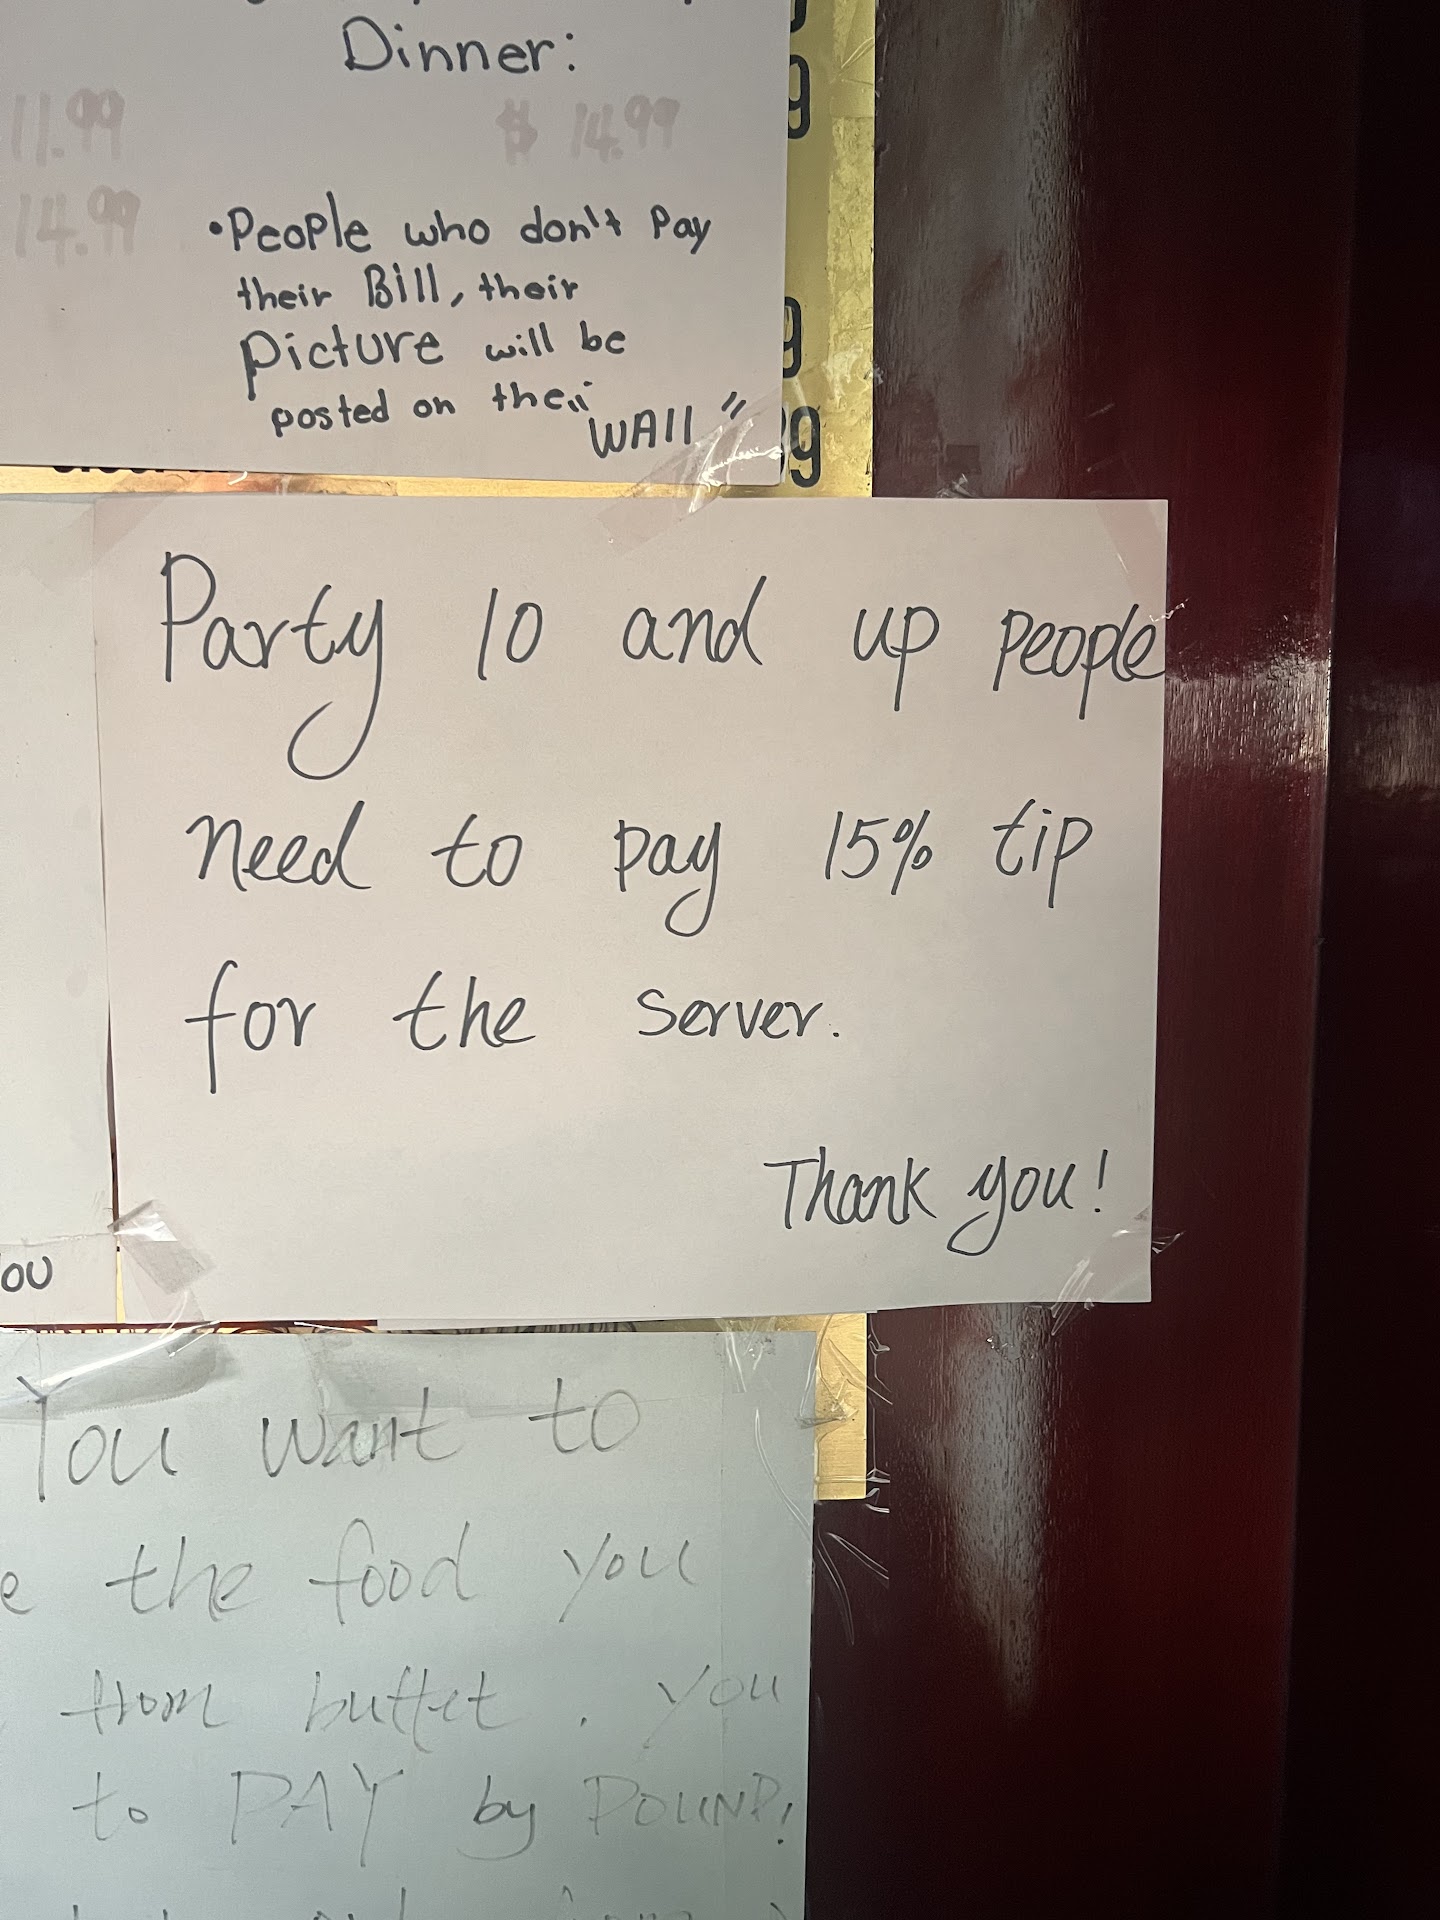 Dinner:
11.99 $ 14.99
14.99
• People who don't Pay
their Bill, their
Picture will be
posted on their
"WAll"
9
9
9
99
Party 10 and up people
need to pay 15% tip
for the server.
Thank you!
ou
You want to
e the food you
from buffet. you
to PAY by POUND!